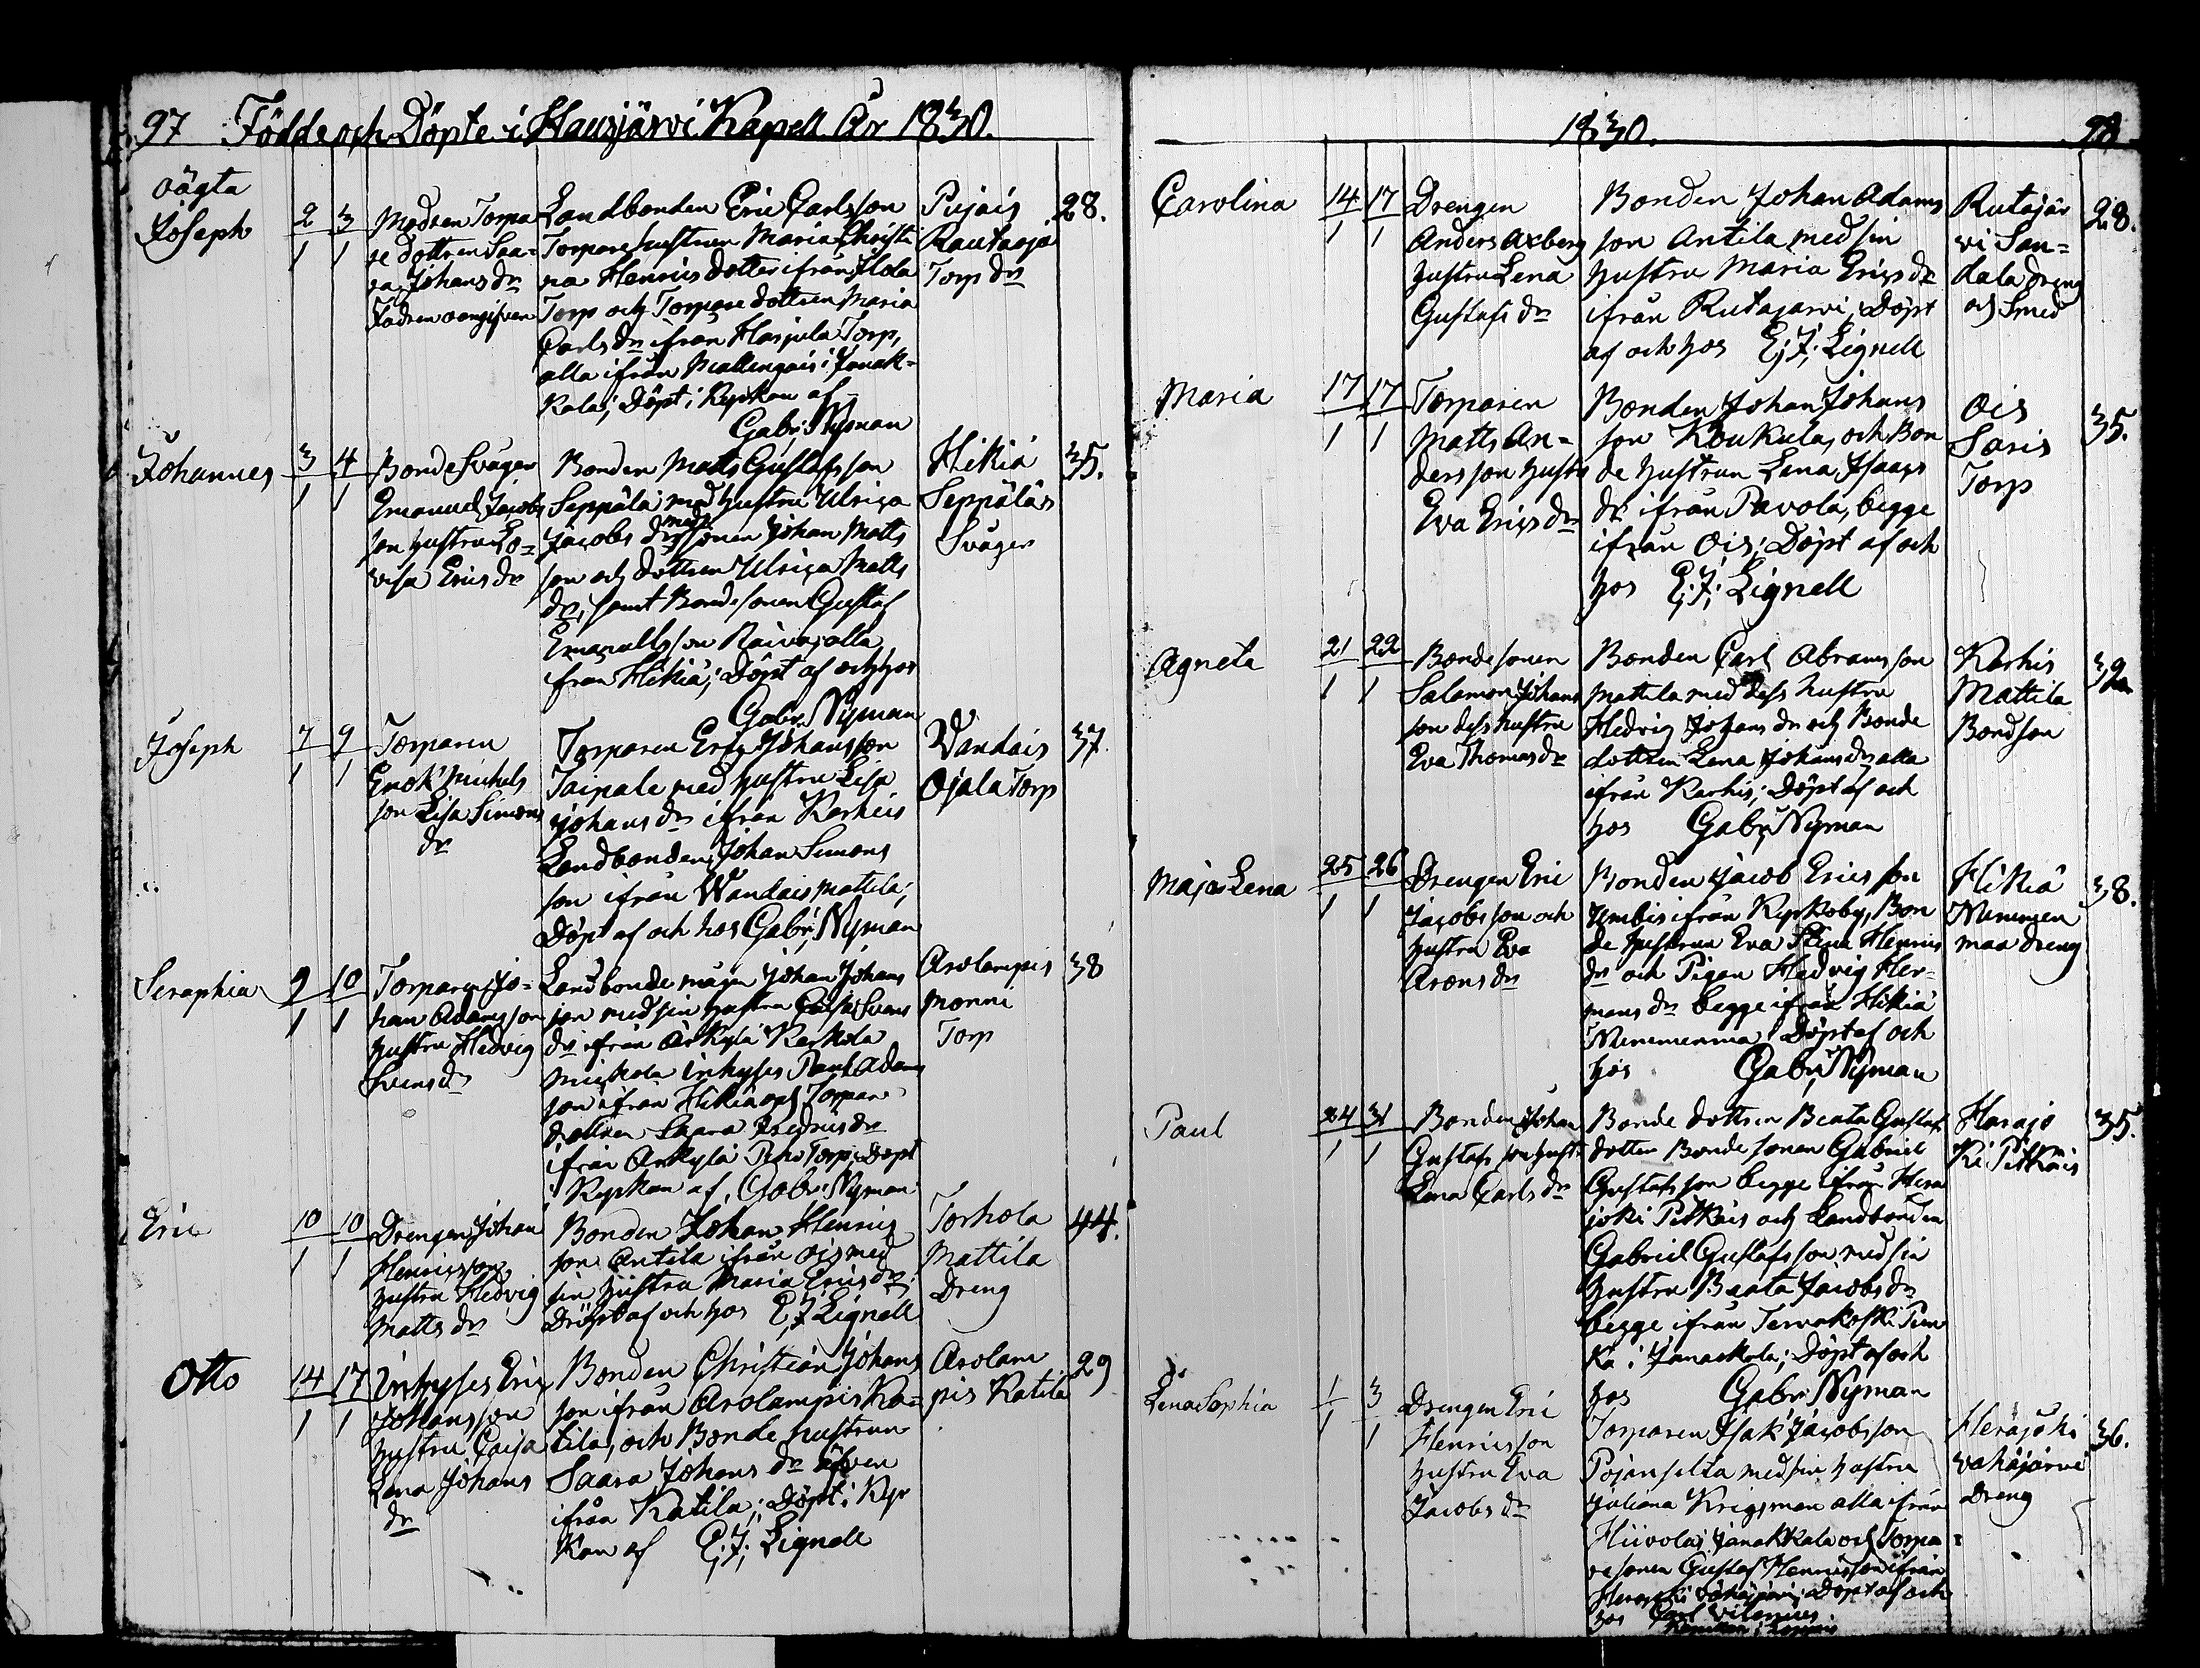 97 Födde och Döpte i Hausjärvi Kapell År 1830.
oägta
Joseph
2 3
1 1
Modren Torpa
re dottren Saa-
ra Johans dr
Fadren oangifven
Landbonden Eric Carlsson
Torpare hustrun Maria Christi
na Henrics dotter ifrån Hola
Torp och Torpare dottren Maria
Carls dr ifrån Harjula Torp,
alla ifrån i Janak-
kala; Döpt i Kyrkan af
Gabr. Nyman
Pujais
Rautaoja
Torp dr
28.
Johannes
3 4
1 1
Bonde Svågern
Emanuel Jacobs
son hustru Lo-
visa Erics dr
Bonden Matts Gustafsson
Seppälä med hustru Ulrica
Jacobs dr med sonen Johan Matts
son och dottren Ulrica Matts
dr, samt Bondesonen Gustaf
Emanuelsson Raiva, alla
från Hikiä; Döpt af och hos
Gabr. Nyman
Hikiä
Seppäläs
Svåger
35.
Joseph
7 9
1 1
Torparen
Enok Michels
son Lisa Simons
dr
Torparen Eric Johansson
Taipale med hustru Lisa
Johans dr ifrån Karhis
Landbonden Johan Simons
son ifrån Wandais Mattila;
Döpt af och hos Gabr. Nyman
Wandais
Ojala Torp
37.
Seraphia
9 10
1 1
Torparen Jo-
han Adamsson
hustru Hedvig
Svens dr
Landbonde mågen Johan Johans
son med sin hustru Caisa Svens
dr ifrån Arkylä Kerkola
inhyses Paul Adams
son ifrån Hikiä och Torpare
dottren Saara Fredrics dr
ifrån Arkylä Torp; Döpt
i Kyrkan af, Gabr. Nyman
Arolampis
Monni
Torp
38
Eric
10 10
1 1
Drengen Johan
Henricsson
hustru Hedvig
Matts dr
Bonden Johan Henrics
son Antila ifrån Ois med
sin hustru Maria Erics dr;
Döpt af och hos E; J; Lignell
Torhola
Mattila
Dreng
44.
Otto
14 17
1 1
Inhyses Eric
Johansson
hustru Caisa
Lena Johans
dr
Bonden Christian Johans
son ifrån Arolampis Ka-
tila, och Bonde hustrun
Saara Johans dr äfven
ifrån Katila; Döpt i Kyr
kan af E; J; Lignell
Arolam
pis Katila
29
1830. 98.
Carolina
14 17
1 1
Drengen
Anders Axberg
hustru Lena
Gustafs dr
Bonden Johan Adams
son Antila med sin
hustru Maria Erics dr
ifrån Rutajärvi, Döpt
af och hos E; J; Lignell
Rutajär
vi San=
dala dreng
och Smed
28.
Maria
17 17
1 1
Torparen
Matts An=
dersson hustr
Eva Erics dr
Bonden Johan Johans
son Koukula, och Bon
de hustrun Lena Isaacs
dr ifrån Pavola, begge
ifrån Ois; Döpt af och
hos E; J; Lignell
Ois
Saris
Torp
35.
Agneta
21 22
1 1
Bondesonen
Salamon Johans
son dess hustru
Eva Thomas dr
Bonden Carl Abramsson
Mattila med dess hustru
Hedvig Johans dr och Bonde
dottren Lena Johans dr alla
ifrån Karhis; Döpt af och
hos Gabr. Nyman
Karhis
Mattila
Bondson
Maja Lena
25 26
1 1
Drengen Eric
Jacobsson och
hustru Eva
Arons dr
Bonden Jacob Ericsson
Umbis ifrån Kyrkoby, Bon
de hustrun Eva Stina Henrics
dr och Pigan Hedvig Her-
mans dr begge ifrån Hikiä
Nimenmaa; Döpt af och
hos Gabr. Nyman
Hikiä
Nimmen
maa dreng
38.
Paul
24 31
1 1
Bonden Johan
Gustafsson hustr
Lena Carls dr
Bonde dottren Beata Gustafs
dotter Bondesonen Gabriel
Gustafsson begge ifrån Hera
joki Pitkäis och Landbonden
Gabriel Gustafsson med sin
hustru Beata Jacobs dr
begge ifrån Tervakoski
i Janackala; Döpt af och
hos Gabr. Nyman
Harajo
ki Pitkäis
35.
Lena Sophia
1 3
1 1
Drengen Eric
Henricsson
hustru Eva
Jacobs dr
Torparen Isak Jacobsson
Pojanselta med sin hustru
Juliana Krigsman alla ifrån
Hiivola i Janakkala och Torpa=
re sonen Gustaf Henricsson ifrån
Herajoki Vahäjärvi; Döpt af och
hos Carl
Herajoki
Vahäjärvi
Dreng
36.